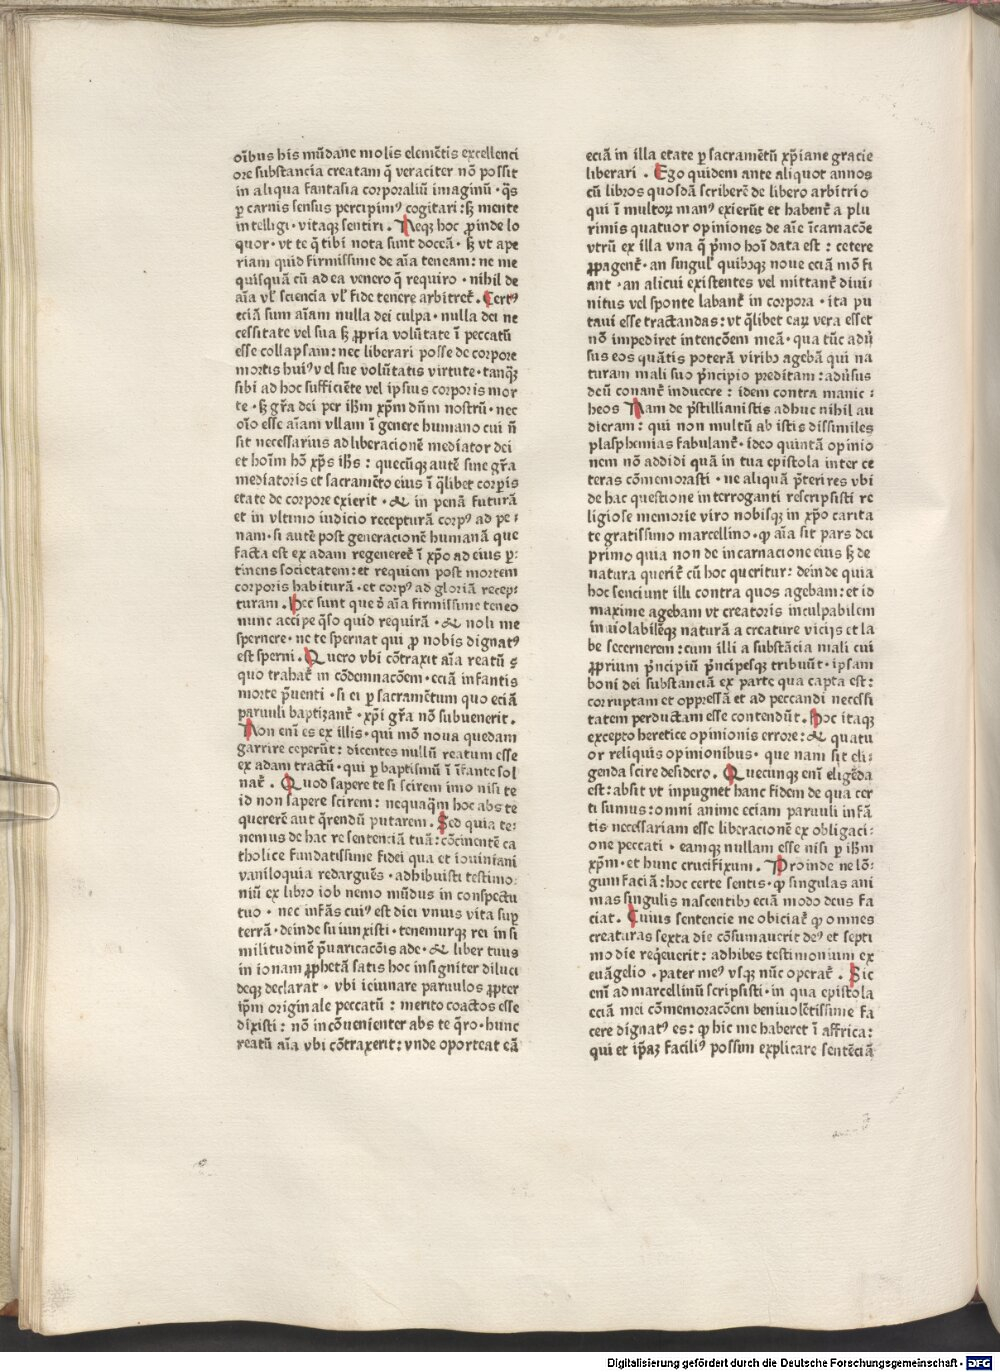 oı̄bus his mūdane molis elemētis excellenci
ore substancia creatam q̄ veraciter nō possit
in aliqua fantasia corporaliū imaginū · q̄s
ꝑ carnis sensus percipimꝰ cogitari : sꝫ mente
intelligi · vitaqꝫ sentiri . Neqꝫ hoc ꝓinde lo
quor · vt te q̄ tibi nota sunt doceā · sꝫ vt ape
riam quid firmissime de aı̄a teneam : ne me
quisquā cū ad ea venero q̄ requiro · nihil de
aı̄a vl̓ sciencia vl̓ fide tenere arbitret̄ . Certꝰ
eciā sum aı̄am nulla dei culpa · nulla dei ne
cessitate vel sua sꝫ ꝓpria volūtate ī peccatū
esse collapsam : nec liberari posse de corpore
mortis huiꝰ vel sue volūtatis virtute · tanqꝫ
sibi ad hoc sufficiēte vel ipsius corporis mor
te · sꝫ gr̄a dei per ih̄m xp̄m dn̄m nostrū · nec
oı̄o esse aı̄am vllam ī genere humano cui n̄
sit necessarius ad liberacionē mediator dei
et hoı̄m hō xp̄s ih̄s : quecūqꝫ autē sine gr̄a
mediatoris et sacramēto eius ī q̄libet corꝑis
etate de corpore exierit · & in penā futurā
et in vltimo iudicio recepturā corpꝰ ad pe-
nam · si autē post generacionē humanā que
facta est ex adam regeneret̄ ī xp̄o ad eius ꝑ-
tinens societatem : et requiem post mortem
corporis habiturā · et corpꝰ ad gloriā recep-
turam . Hec sunt que d̄ aı̄a firmissime teneo
nunc accipe q̄so quid requirā · & noli me
spernere · ne te spernat qui ꝓ nobis dignatꝰ
est sperni . Quero vbi cōtraxit aı̄a reatū ꝗ
quo trahat̄ in cōdemnacōem · eciā infantis
morte p̄uenti · si ei ꝑ sacramētum quo eciā
paruuli baptizant̄ · xp̄i gr̄a nō subuenerit .
Non enī es ex illis · qui mō noua quedam
garrire ceperūt : dicentes nullū reatum esse
ex adam tractū · qui ꝑ baptismū ī īfante sol
uat̄ . Quod sapere te si scirem imo nisi te
id non sapere scirem : nequaq̄m hoc abs te
quererē aut q̄rendū putarem . Sed quia te-
nemus de hac re sentenciā tuā : cōcinentē ca
tholice fundatissime fidei qua et iouiniani
vaniloquia redarguēs · adhibuisti testimo-
niū ex libro iob nemo mūdus in conspectu
tuo · nec infās cuiꝰ est diei vnius vita suꝑ
terrā · deinde su iunxisti · tenemurqꝫ rei in si
militudinē p̄uaricacōis ade · & liber tuus
in ionam ꝓphetā satis hoc insigniter diluci
deqꝫ declarat · vbi ieiunare paruulos ꝓpter
ip̄m originale peccatū : merito coactos esse
dixisti : nō incōuenienter abs te q̄ro · hunc
reatū aı̄a vbi cōtraxerit : vnde oporteat eā
eciā in illa etate ꝑ sacramētū xp̄iane gracie
liberari . Ego quidem ante aliquot annos
cū libros quosdā scriberē de libero arbitrio
qui ī multoꝝ manꝰ exierūt et habent̄ a plu
rimis quatuor opiniones de aı̄e īcarnacōe
vtrū ex illa vna q̄ p̄mo hoı̄ data est : cetere
ꝓpagent̄ · an singul̓ quibꝫqꝫ noue eciā mō fi
ant · an alicui existentes vel mittant̄ diui-
nitus vel sponte labant̄ in corpora · ita pu
taui esse tractandas : vt q̄libet eaꝝ vera esset
nō impediret intencōem meā · qua tūc adū
sus eos quātis poterā viribꝫ agebā qui na
turam mali suo p̄ncipio preditam : adūsus
deū conant̄ inducere : idem contra manic :
heos Nam de p̄scillianistis adhuc nihil au
dieram : qui non multū ab istis dissimiles
plasphemias fabulant̄ · ideo quintā opinio
nem nō addidi quā in tua epistola inter ce
teras cōmemorasti · ne aliquā p̄terires vbi
de hac questione interroganti rescripsisti re
ligiose memorie viro nobisqꝫ in xp̄o carita
te gratissimo marcellino · ꝙ aı̄a sit pars dei
primo quia non de incarnacione eius sꝫ de
natura querit̄ cū hoc queritur : deinde quia
hoc senciunt illi contra quos agebam : et id
maxime agebam vt creatoris inculpabilem
inuiolabilēqꝫ naturā a creature vicijs et la
be secernerem : cum illi a substācia mali cui
ꝓprium p̄ncipiū p̄ncipesqꝫ tribuūt · ipsam
boni dei substanciā ex parte qua capta est :
corruptam et oppressā et ad peccandi necessi
tatem perductam esse contendūt . Hoc itaqꝫ
excepto heretice opinionis errore : & quatu
or reliquis opinionibus · que nam sit eli-
genda scire desidero . Quecunqꝫ enī eligēda
est : absit vt inpugnet hanc fidem de qua cer
ti sumus : omni anime eciam paruuli infā
tis necessariam esse liberacionē ex obligaci-
one peccati · eamqꝫ nullam esse nisi ꝑ ih̄m
xp̄m · et hunc crucifixum . Proinde ne lō-
gum faciā : hoc certe sentis · ꝙ singulas ani
mas singulis nascentibꝫ eciā modo deus fa
ciat . Cuius sentencie ne obiciat̄ ꝙ omnes
creaturas sexta die cōsumauerit deꝰ et septi
mo die req̄euerit : adhibes testimonium ex
euāgelio · pater meꝰ vsqꝫ nūc operat̄ . Sic
enī ad marcellinū scripsisti · in qua epistola
eciā mei cōmemoracōem beniuolētissime fa
cere dignatꝰ es : ꝙ hic me haberet ī affrica :
qui et ip̄aꝫ faciliꝰ possim explicare sentēciā
Digitalisierung gefördert durch die Deutsche Forschungsgemeinschaft · DFG